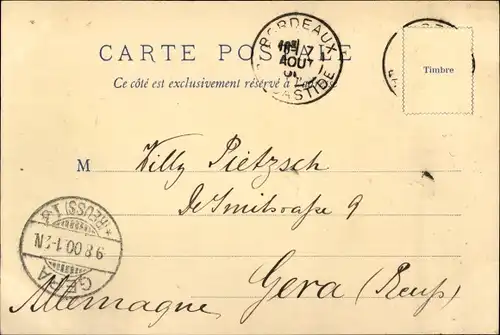 CARTE POSTALE
Ce côté est exclusivement réservé à l'adresse
BORDEAUX
AOUT
BASTIDE
Timbre
M Willy Pietzsch
De Smitstraße 9
Gera (Reuß)
Allemagne
GERA
9.8.00.1-2N
* (REUSS) 1 b